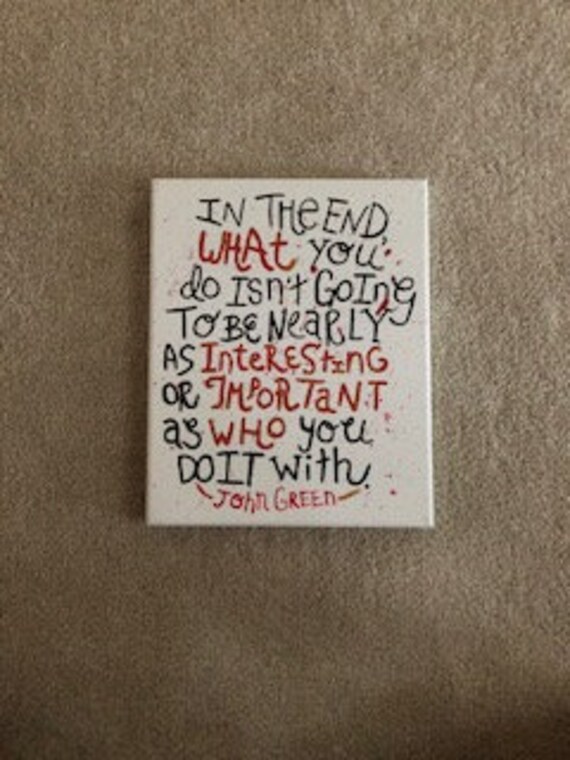 IN THe END
WHAt you
do Isn't GoIng
To BE NeaRLY
AS InteRESTING
OR IMPORTaNT
as WHO you
DO IT With.
John GREEn